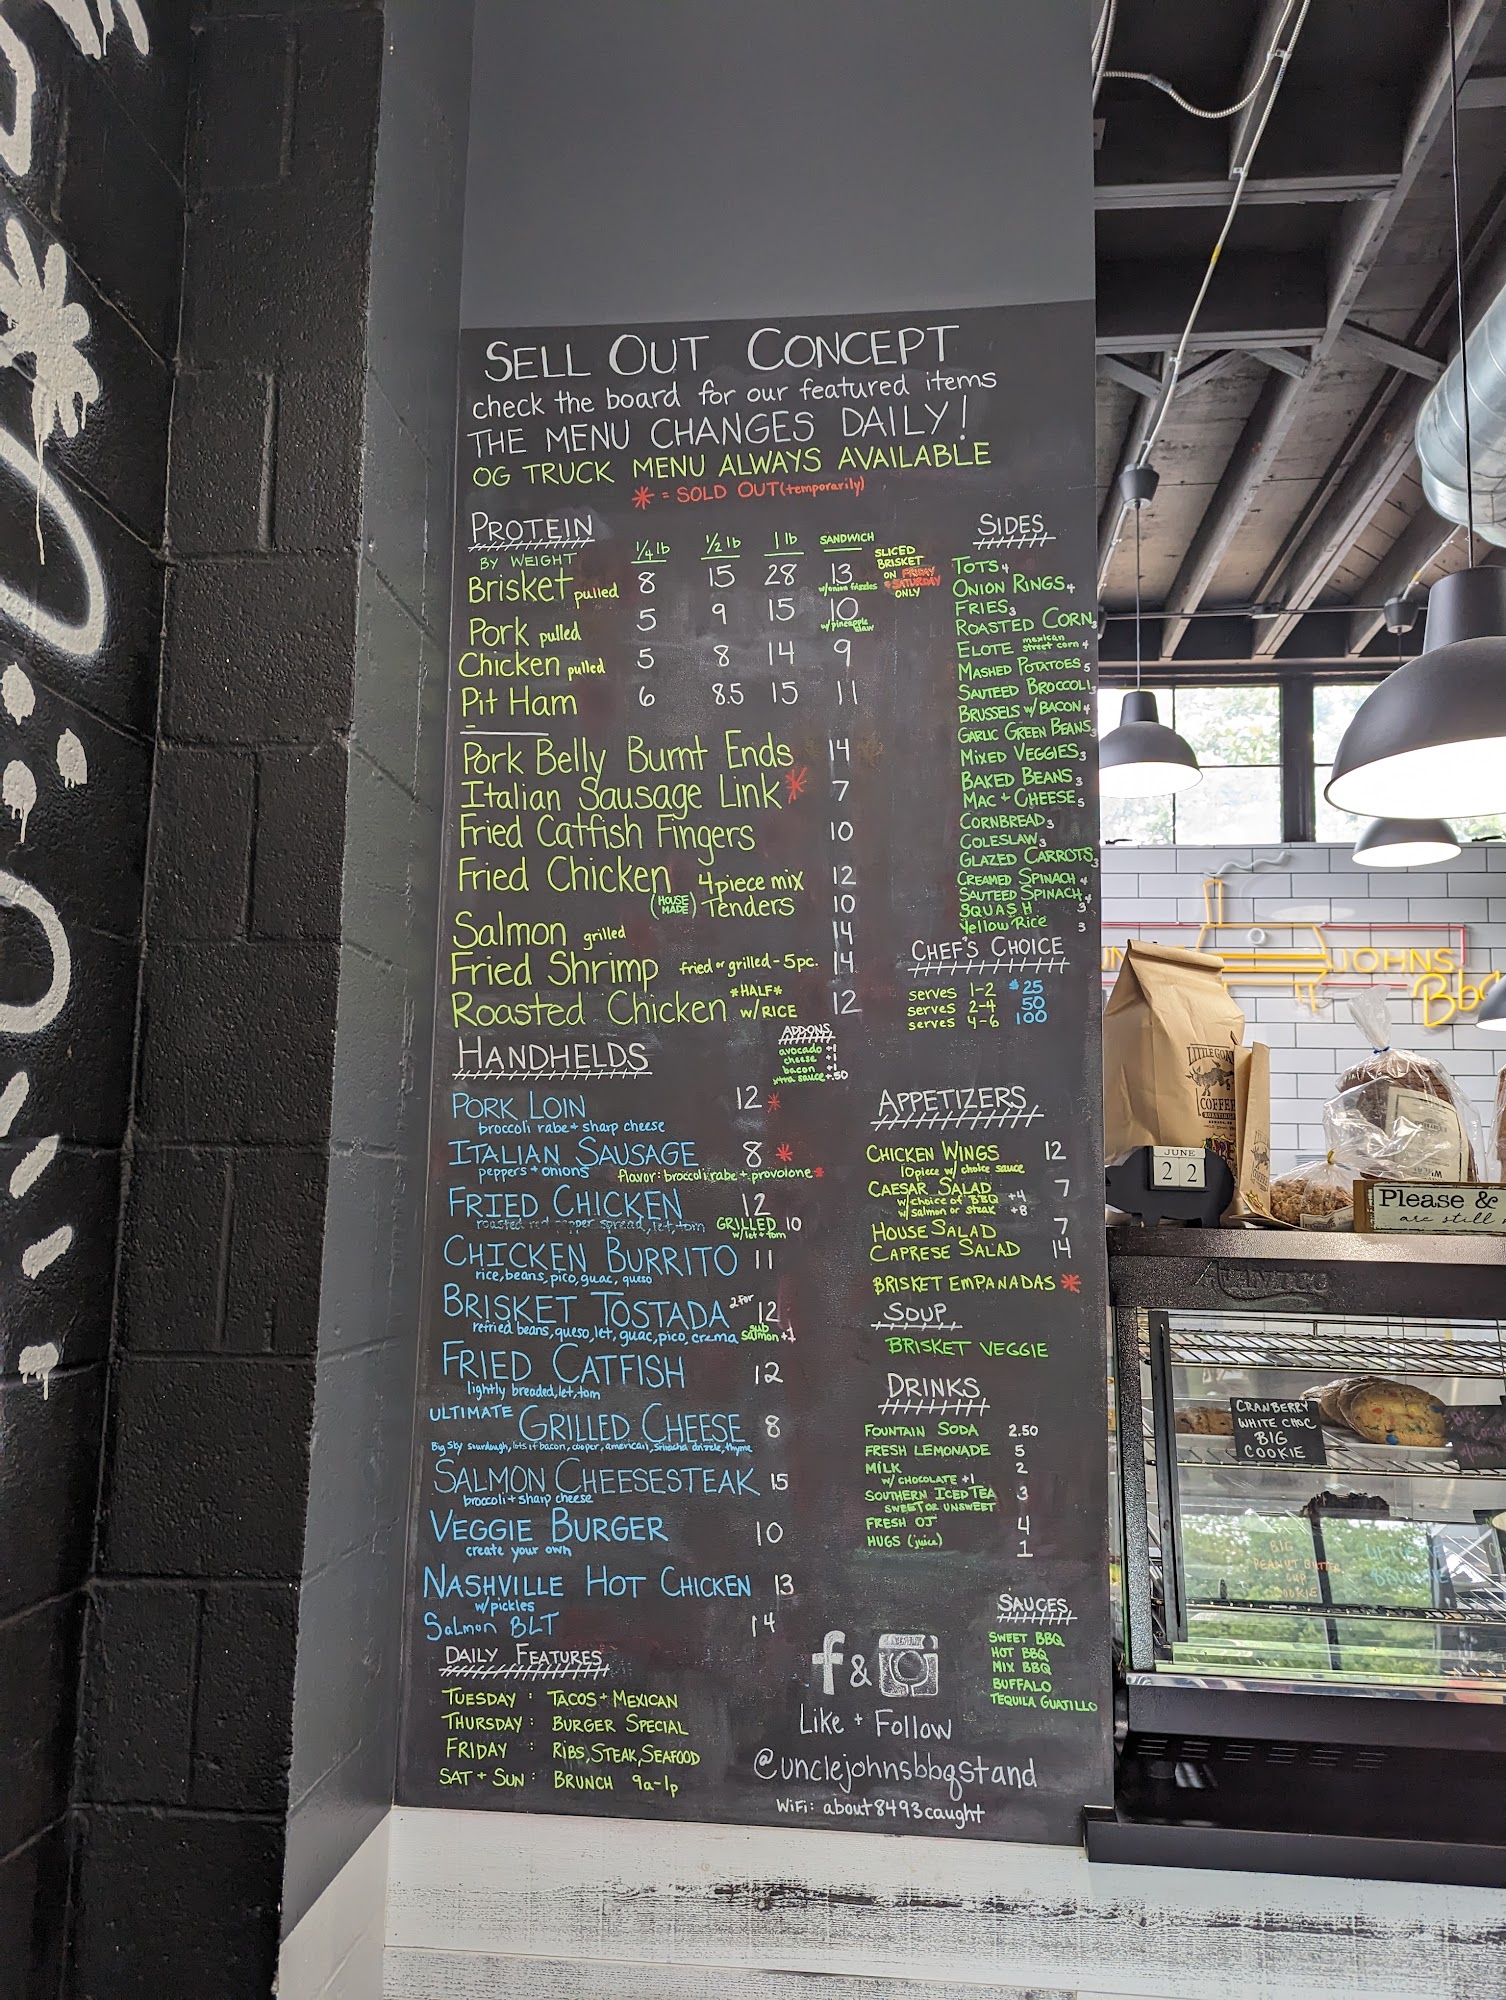 SELL OUT CONCEPT
check the board for our featured items
THE MENU CHANGES DAILY!
OG TRUCK MENU ALWAYS AVAILABLE
* = SOLD OUT (temporarily)
PROTEIN
BY WEIGHT 1/4 lb 1/2 lb 1 lb SANDWICH
SLICED
BRISKET
ON FRIDAY
+ SATURDAY
ONLY
Brisket pulled 8 15 28 13
w/onion frizzles
Pork pulled 5 9 15 10
w/pineapple
slaw
Chicken pulled 5 8 14 9
Pit Ham 6 8.5 15 11
Pork Belly Burnt Ends 14
Italian Sausage Link * 7
Fried Catfish Fingers 10
Fried Chicken 4 piece mix 12
(HOUSE MADE) Tenders 10
Salmon grilled 14
Fried Shrimp fried or grilled - 5pc. 14
Roasted Chicken *HALF* w/RICE 12
SIDES
TOTS 4
ONION RINGS 4
FRIES 3
ROASTED CORN 3
ELOTE mexican street corn 4
MASHED POTATOES 5
SAUTEED BROCCOLI 3
BRUSSELS w/ BACON 4
GARLIC GREEN BEANS 3
MIXED VEGGIES 3
BAKED BEANS 3
MAC + CHEESE 5
CORNBREAD 3
COLESLAW 3
GLAZED CARROTS 3
CREAMED SPINACH 4
SAUTEED SPINACH 4
SQUASH 3
Yellow Rice 3
CHEF'S CHOICE
serves 1-2 $25
serves 2-4 50
serves 4-6 100
HANDHELDS
ADDONS
avocado +1
cheese +1
bacon +1
xtra sauce +.50
PORK LOIN 12 *
broccoli rabe + sharp cheese
ITALIAN SAUSAGE 8 *
peppers + onions flavor: broccoli rabe + provolone *
FRIED CHICKEN 12
roasted red pepper spread, let, tom GRILLED 10
w/let + tom
CHICKEN BURRITO 11
rice, beans, pico, guac, queso
BRISKET TOSTADA 2 for 12
refried beans, queso, let, guac, pico, crema sub salmon +1
FRIED CATFISH 12
lightly breaded, let, tom
ULTIMATE GRILLED CHEESE 8
Big Sky sourdough, lots of bacon, cooper, american, sriracha drizzle, thyme
SALMON CHEESESTEAK 15
broccoli + sharp cheese
VEGGIE BURGER 10
create your own
NASHVILLE HOT CHICKEN 13
w/pickles
Salmon BLT 14
APPETIZERS
CHICKEN WINGS 12
10 piece w/ choice sauce
CAESAR SALAD 7
w/choice of BBQ +4
w/ salmon or steak +8
HOUSE SALAD 7
CAPRESE SALAD 14
BRISKET EMPANADAS *
SOUP
BRISKET VEGGIE
DRINKS
FOUNTAIN SODA 2.50
FRESH LEMONADE 5
MILK 2
w/ CHOCOLATE +1
SOUTHERN ICED TEA 3
SWEET OR UNSWEET
FRESH OJ 4
HUGS (juice) 1
SAUCES
SWEET BBQ
HOT BBQ
MIX BBQ
BUFFALO
TEQUILA GUAJILLO
DAILY FEATURES
TUESDAY : TACOS + MEXICAN
THURSDAY : BURGER SPECIAL
FRIDAY : RIBS, STEAK, SEAFOOD
SAT + SUN : BRUNCH 9a-1p
f &
Like + Follow
@unclejohnsbbqstand
WiFi: about8493caught
JOHNS
BbQ
LITTLE GOAT
COFFEE
JUNE
2 2
Please &
are still
CRANBERRY
WHITE CHOC
BIG
COOKIE
BIG
PEANUT BUTTER
CUP
COOKIE